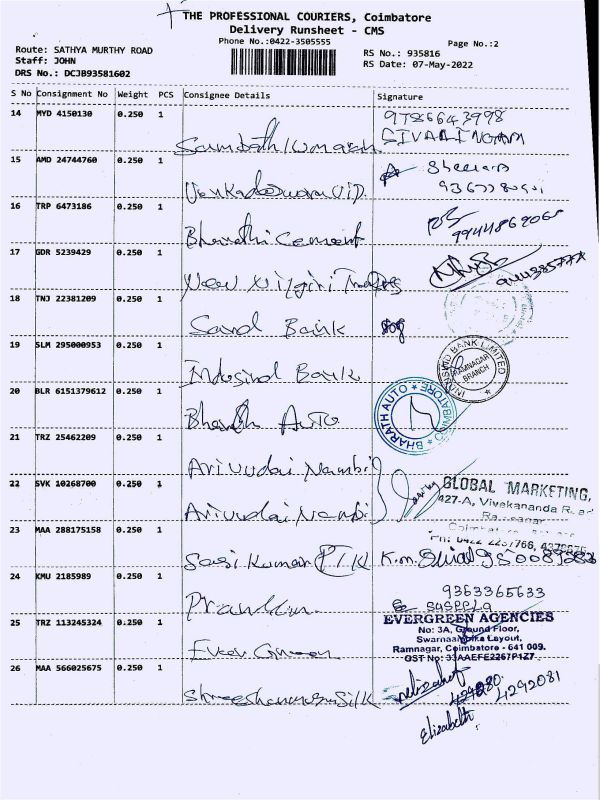 THE PROFESSIONAL COURIERS, Coimbatore
Delivery Runsheet - CMS
Phone No.:0422-3505555
Page No.:2
Route: SATHYA MURTHY ROAD
Staff: JOHN
DRS No.: DCJB93581602
RS No.: 935816
RS Date: 07-May-2022
S No Consignment No Weight PCS Consignee Details Signature
14 MYD 4150130 0.250 1 9786643998
SIVALINGAM
15 AMD 24744760 0.250 1
16 TRP 6473186 0.250 1 Bharathi Cement
17 GDR 5239429 0.250 1 New Nilgiri
18 TNJ 22381209 0.250 1 Sand Bank
19 SLM 295000953 0.250 1 Indusind Bank
INDUSIND BANK LIMITED
RAMNAGAR
BRANCH
20 BLR 6151379612 0.250 1 Bharath Auto
BHARATH AUTO
COIMBATORE
21 TRZ 25462209 0.250 1 Arivudai Nambi
22 SVK 10268700 0.250 1 Arivudai Nambi
GLOBAL MARKETING,
427-A, Vivekananda Road
23 MAA 288175158 0.250 1 Sasi Kumar
24 KMU 2185989 0.250 1 9363365633
25 TRZ 113245324 0.250 1 Ever Green
EVERGREEN AGENCIES
No: 3A, Ground Floor,
Swarnaambika Layout,
Ramnagar, Coimbatore - 641 009.
GST No: 33AAEFE2267P1Z7
26 MAA 566025675 0.250 1
4292081
Elizabeth